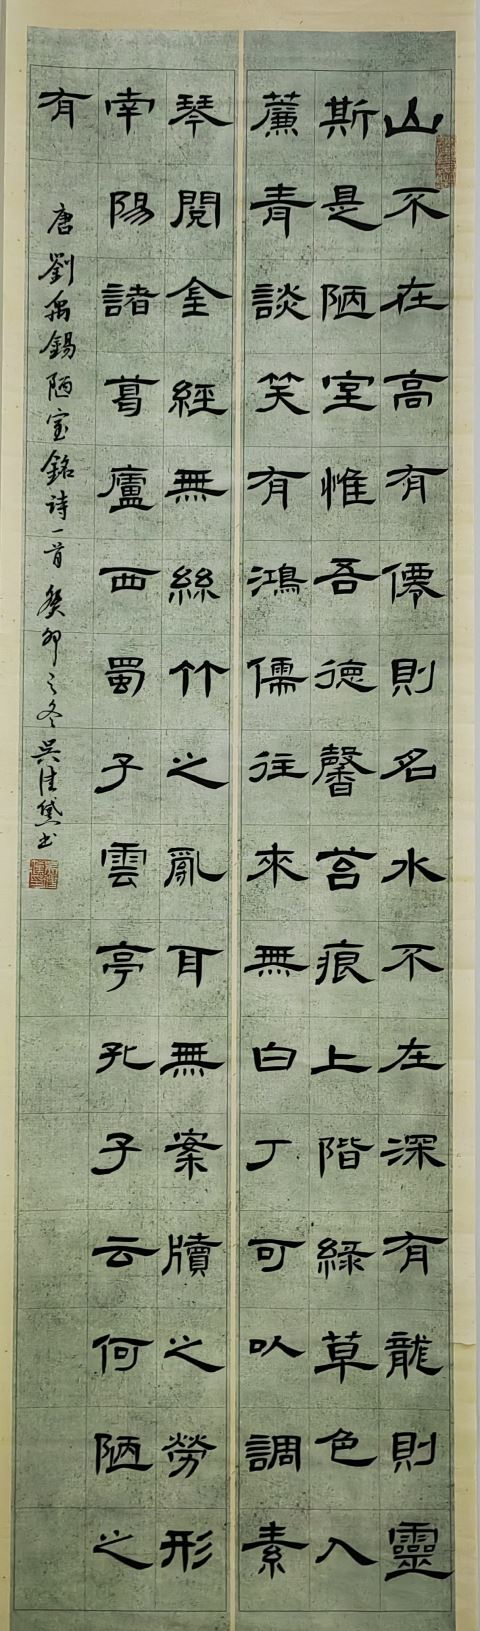 山不在高有僊則名水不在深有龍則靈
斯是陋室惟吾德馨苔痕上階綠草色入
薕青談笑有鴻儒往來無白丁可以調素
琴閱金經無絲竹之亂耳無案牘之勞形
南陽諸葛廬西蜀子雲亭孔子云何陋之
有
唐劉禹錫陋室銘詩一首癸卯之冬吳佳黛书